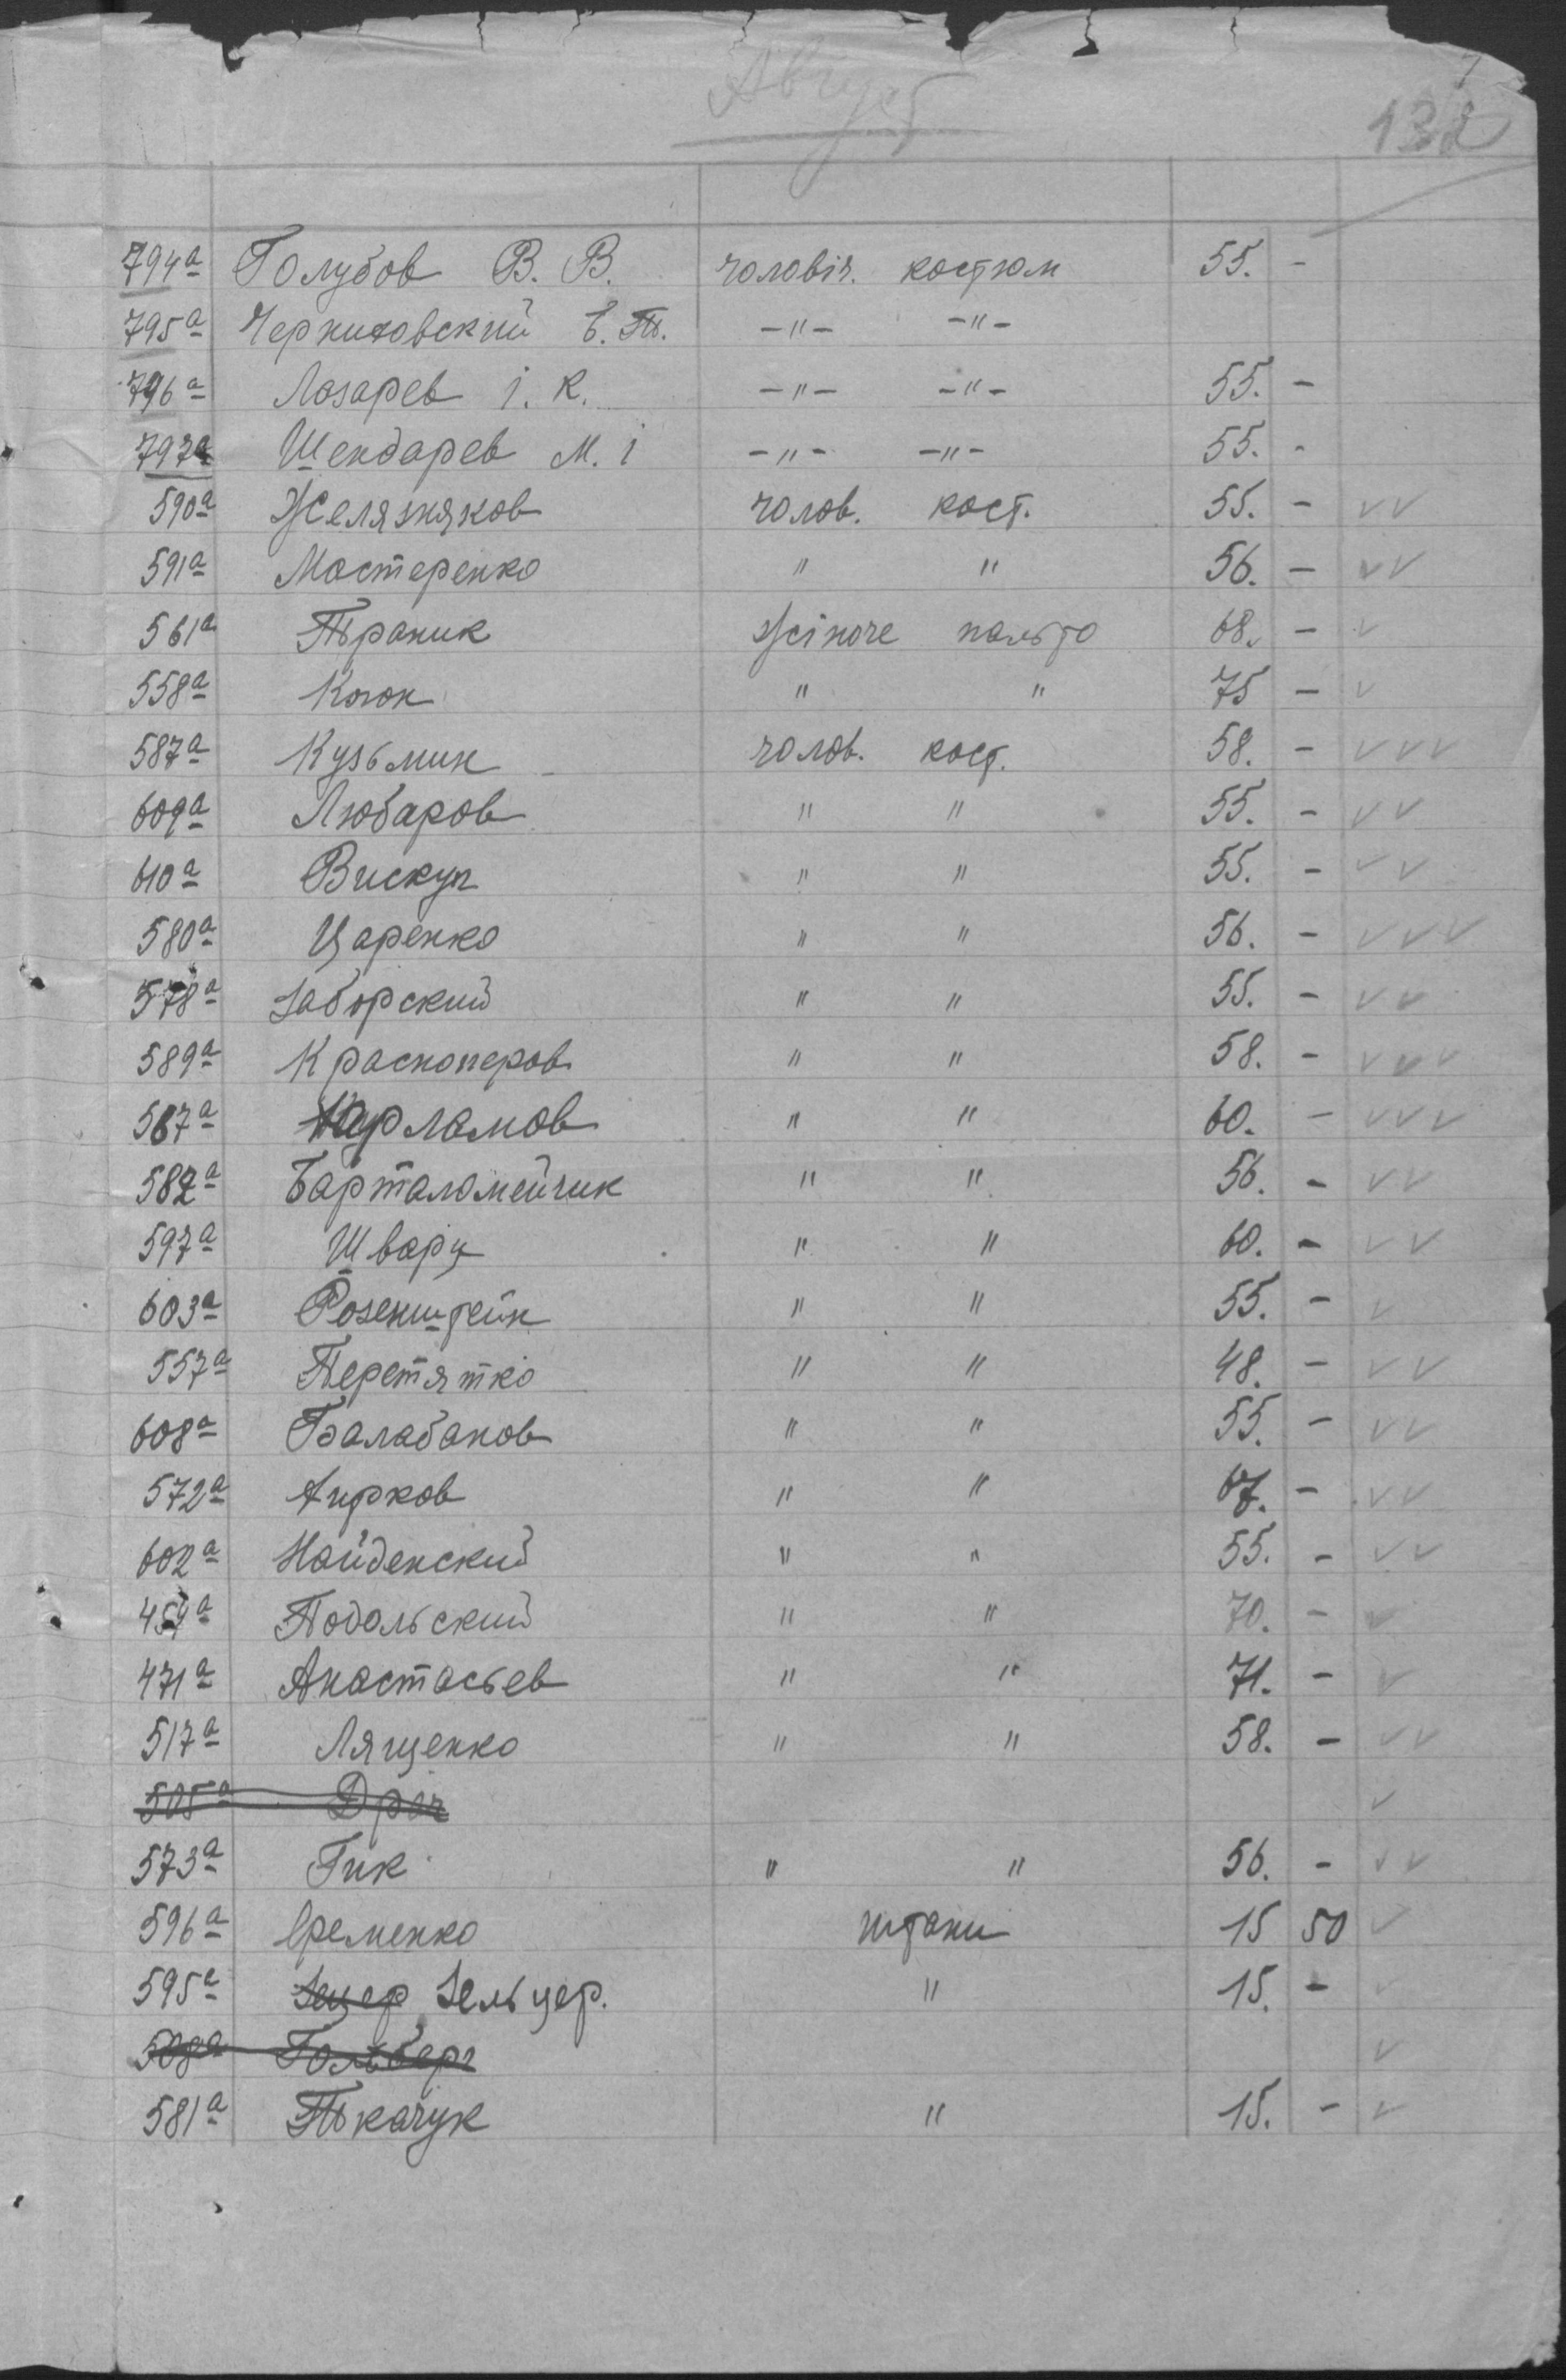 Август
132
794а Голубов В. В. чоловіч. костюм 55. -
795а Черниховский Е. Т. -"- -"-
796а Лазарев І. К. -"- -"- 55. -
797а Шендарев М. І -"- -"- 55. -
590а Желязняков чолов. кост. 55. - ✓✓
591а Мастеренко " " 56. - ✓✓
561а Траник жіноче пальто 68. - ✓
558а Коган " " 75 - ✓
587а Кузьмин чолов. кост. 58. - ✓✓✓
609а Любаров " " 55. - ✓✓
610а Вискуп " " 55. - ✓✓
580а Царенко " " 56. - ✓✓✓
578а Заборский " " 55. - ✓✓
589а Красноперов " " 58. - ✓✓✓
567а Харламов " " 60. - ✓✓✓
582а Барталомейчик " " 56. - ✓✓
597а Шварц " " 60. - ✓✓
603а Розенштейн " " 55. - ✓
557а Перетятко " " 48. - ✓✓
608а Балабанов " " 55. - ✓✓
572а " " 67. - ✓✓
602а Найденский " " 55. - ✓✓
459а Подольский " " 70. - ✓
471а Анастасьев " " 71. - ✓
517а Лященко " " 58. - ✓✓
505а Драч ✓
573а Гик " " 56. - ✓✓
596а Єременко штани 15 50 ✓
595а Зецер Зельцер. " 15. - ✓
508а Гольберг ✓
581а Ткачук " 15. - ✓